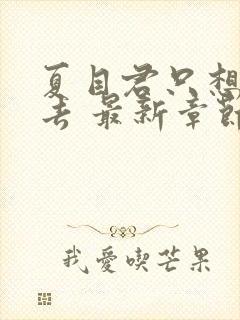 夏目君只想
去 最新章節
我愛喫芒果